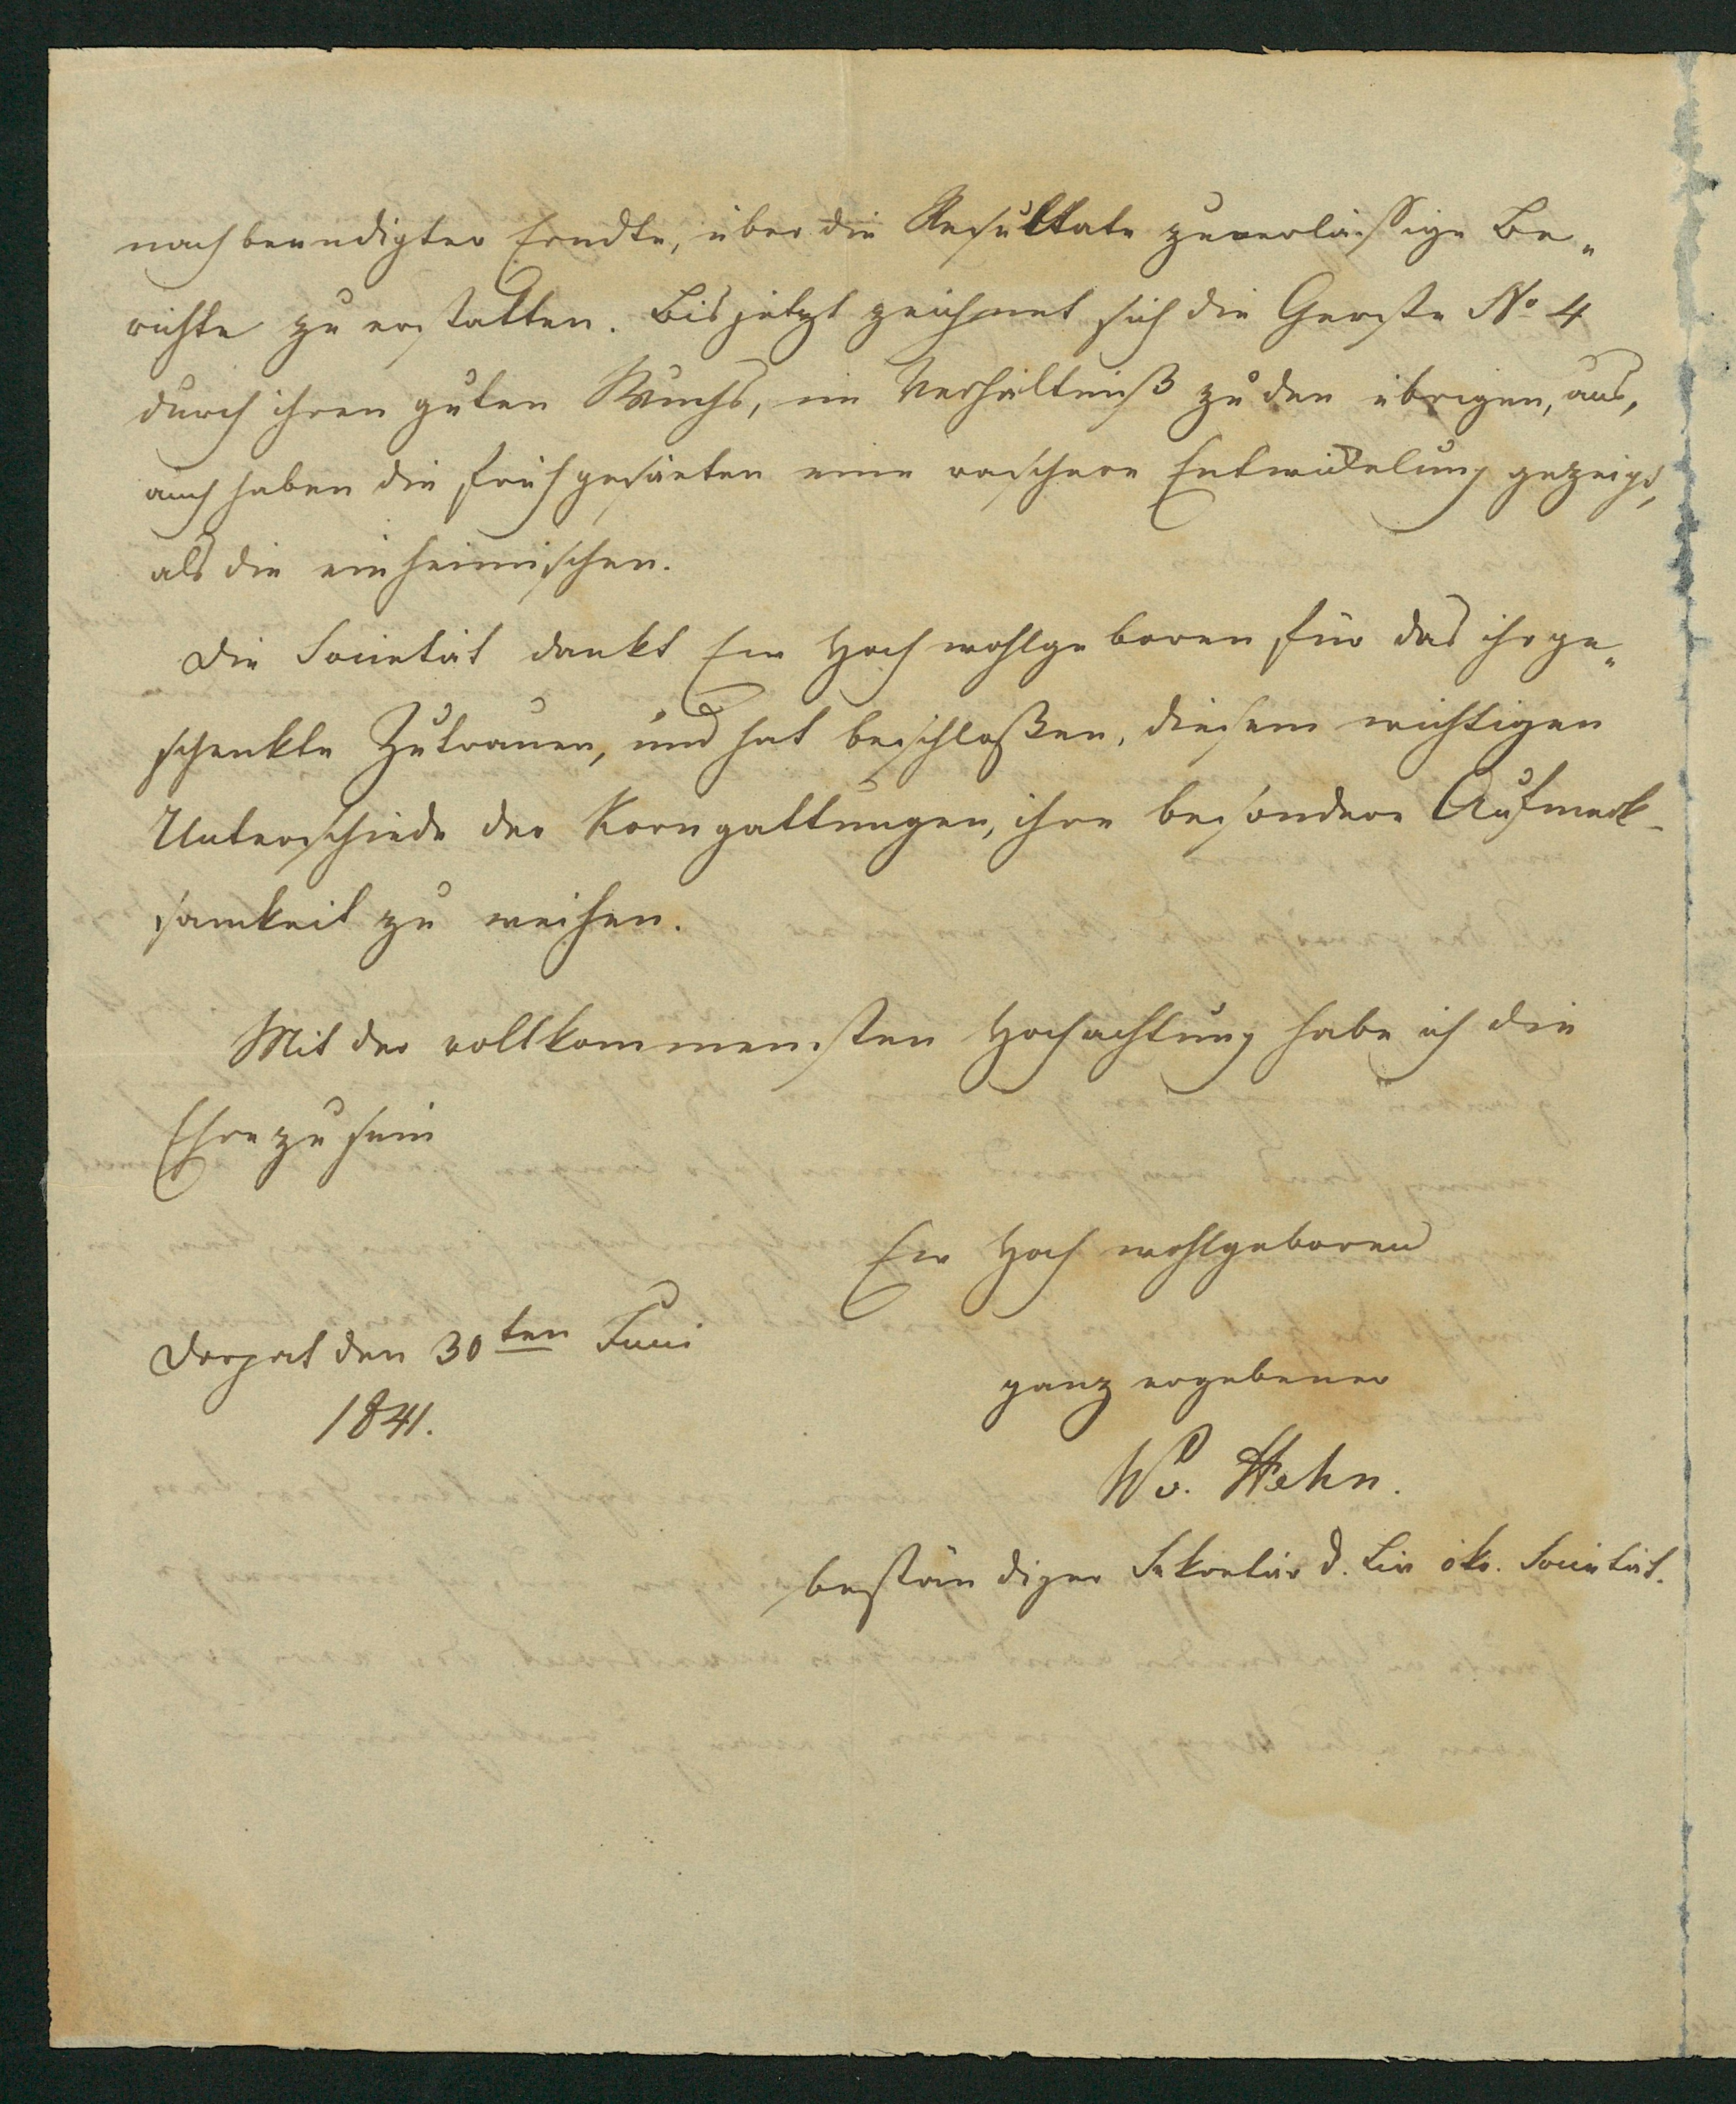 nach beendigter Erndte, über die Resultate zuverläßige Be„
richte zu erstatten. Bis jetzt zeichnet sich die Gerste No 4
durch ihren guten Wuchs, im Verhältniß zu den übrigen, aus,
auch haben die frühgesäeten eine raschere Entwickelung gezeigt,
als die einheimischen.
Die Societät dankt Ew Hochwohlgeboren für das ihr ge„
schenkte Zutrauen, und hat beschloßen, diesem wichtigen
Unterschiede der Korngattungen, ihre besondere Aufmerk-
samkeit zu weihen.
Mit der vollkommensten Hochachtung habe ich die
Ehre zu sein
Ew Hochwohlgeboren
Dorpat den 30ten Juni
1841.
ganz ergebener
W v. Hehn.
beständiger Sekretär d. Liv ök. Societät.